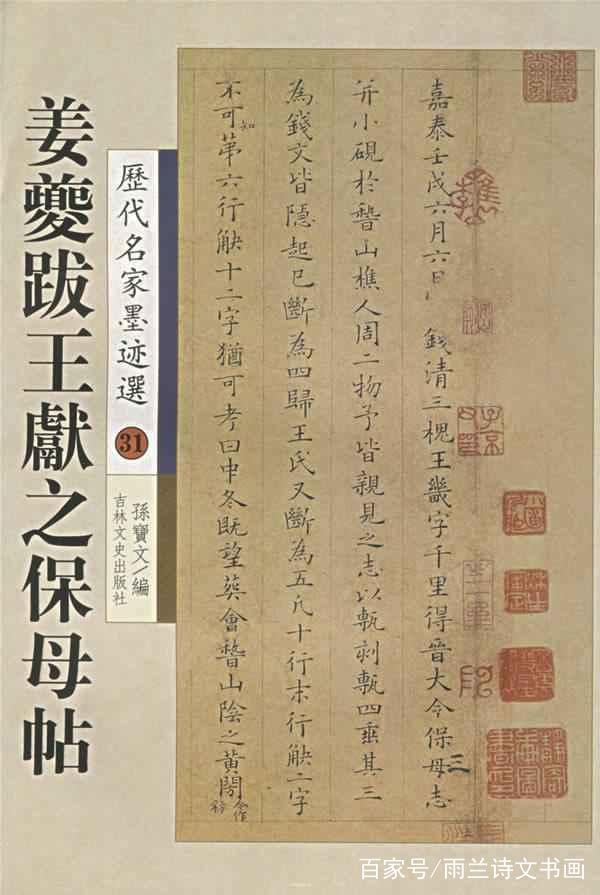 姜夔跋王獻之保母帖
歷代名家墨迹選
31
孫寶文/編
吉林文史出版社
嘉泰壬戌六月六日 錢清三槐王畿字千里得晉大令保母志
并小硯於嵇山樵人周二物予皆親見之志以甎刻甎四垂其三
為錢文皆隱起已斷為四歸王氏又斷為五凡十行末行缺二字
不可知第六行缺十二字猶可考曰中冬既望葬會嵇山陰之黃閍
百家号/雨兰诗文书画